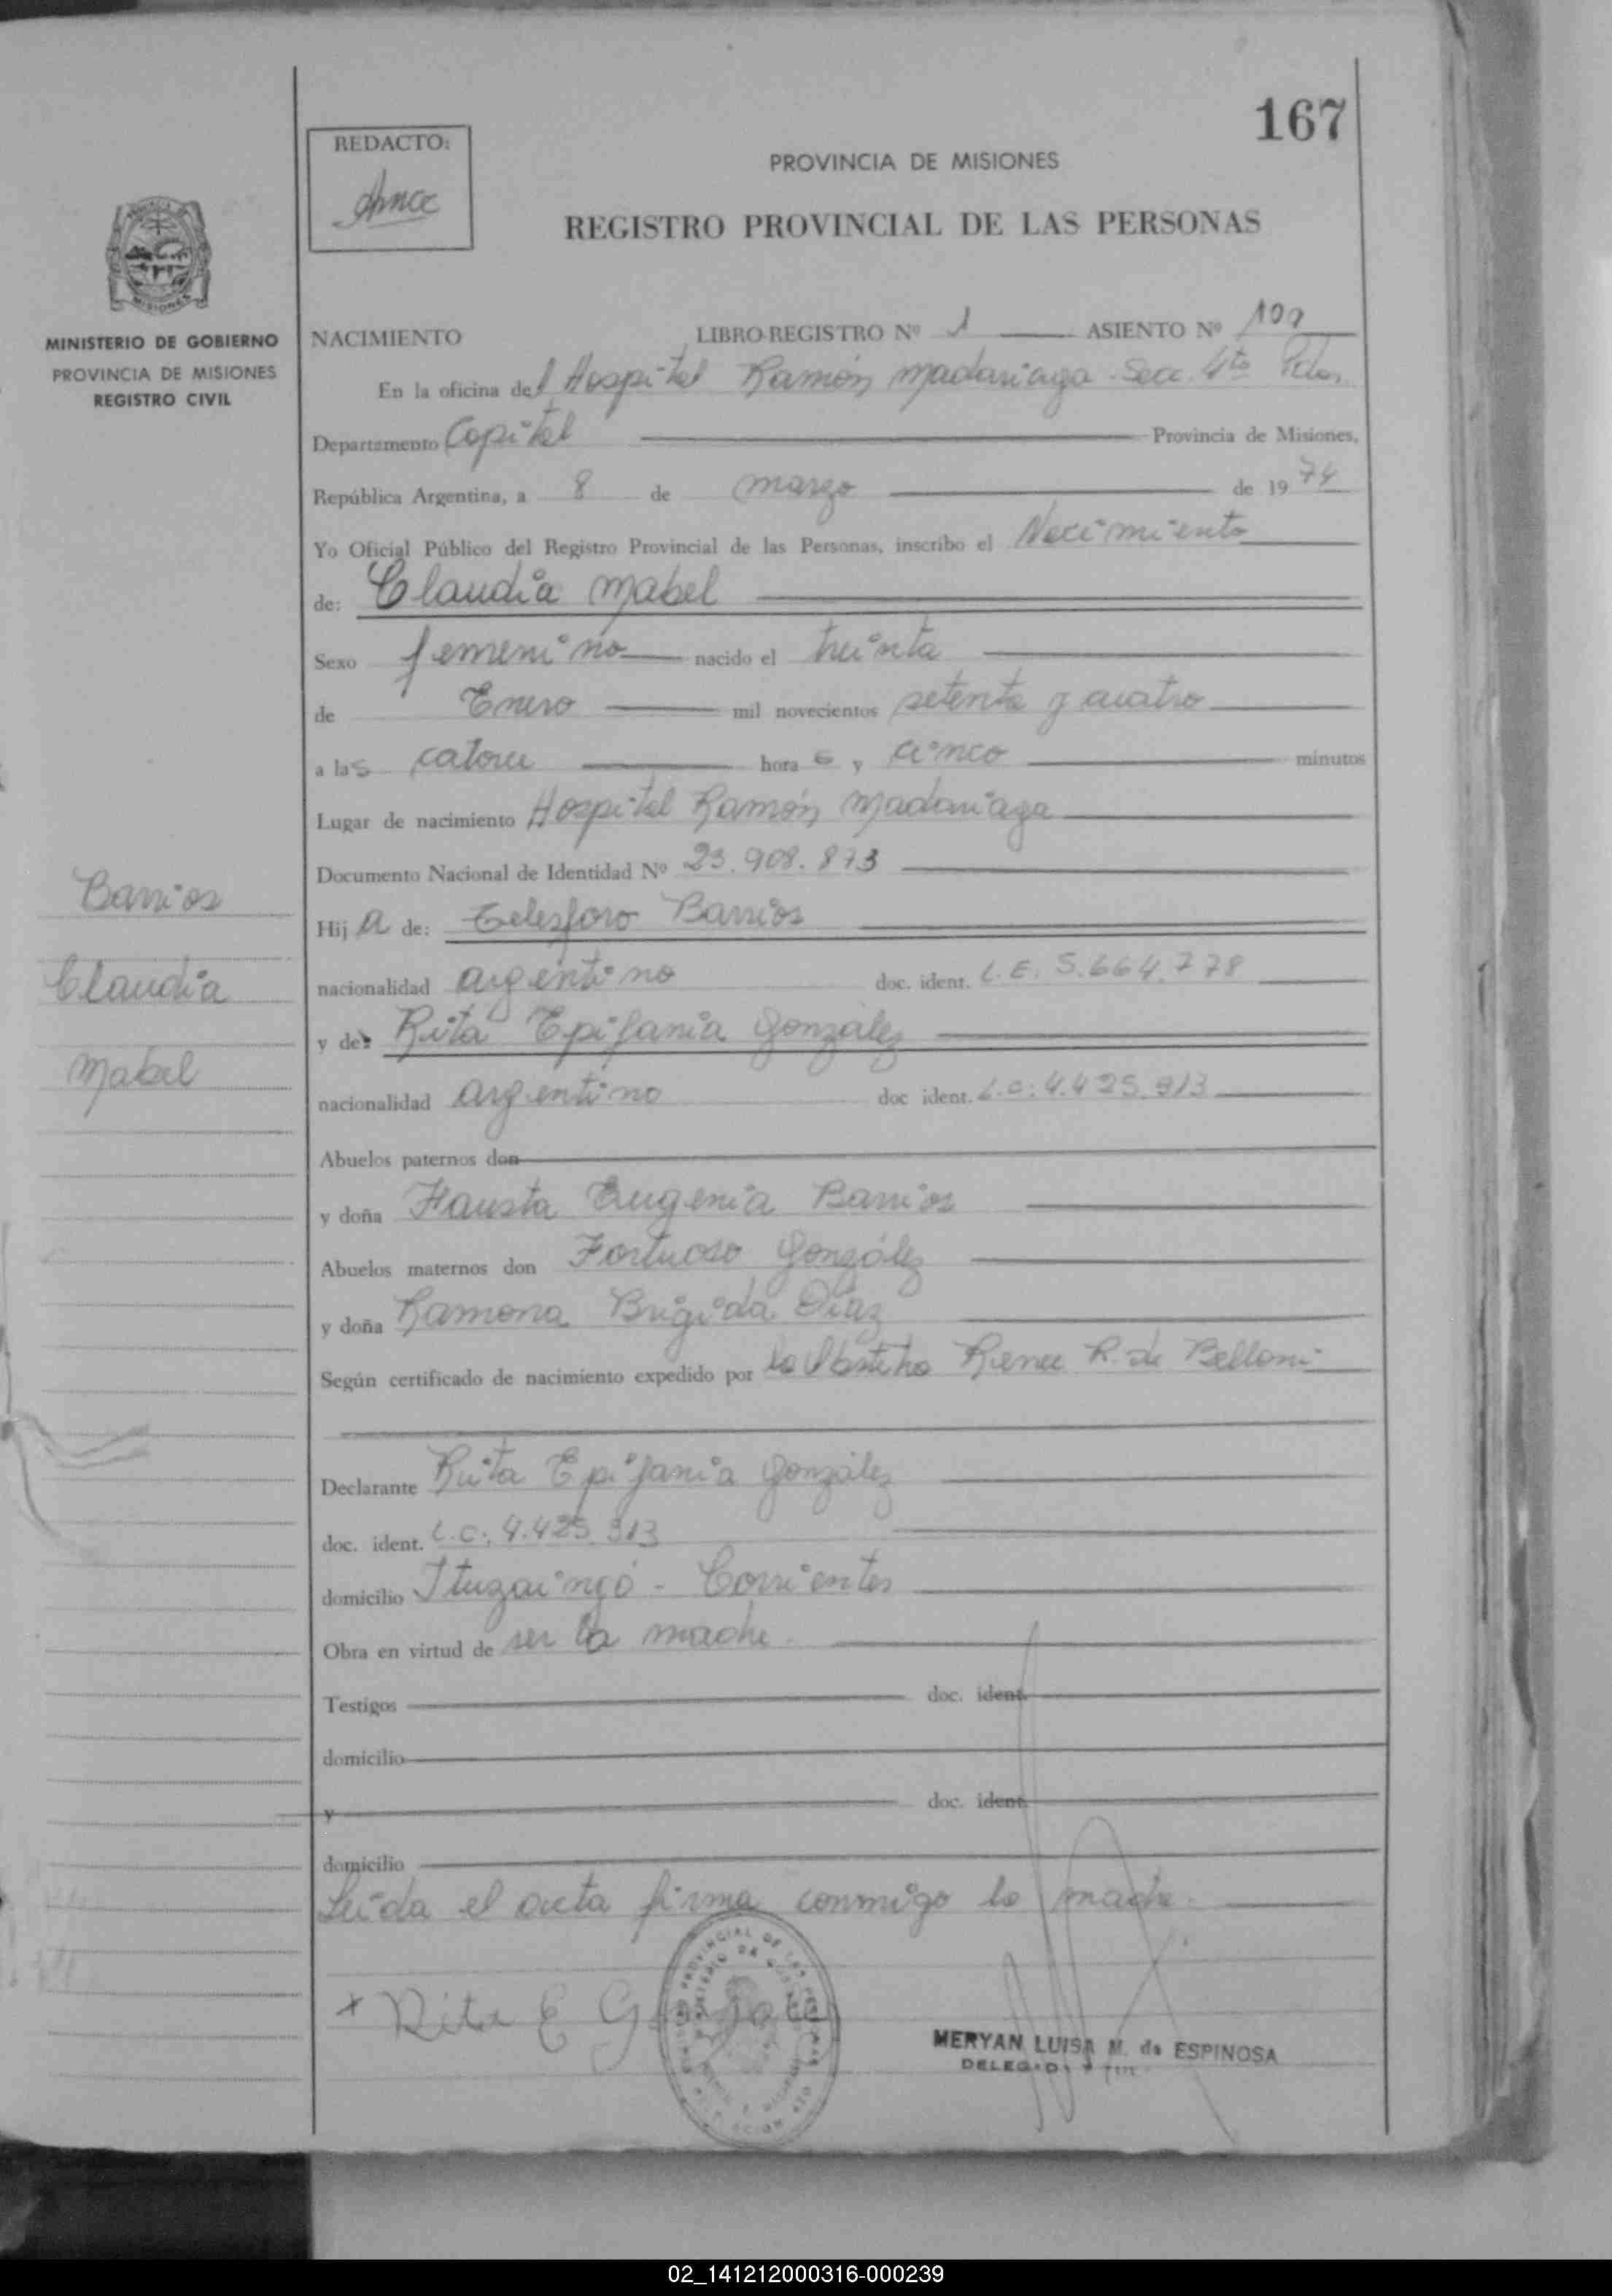 167
REDACTO:
PROVINCIA DE MISIONES
REGISTRO PROVINCIAL DE LAS PERSONAS
MISIONES
MINISTERIO DE GOBIERNO
PROVINCIA DE MISIONES
REGISTRO CIVIL
NACIMIENTO LIBRO-REGISTRO Nº 1 ASIENTO Nº
En la oficina del Hospital Ramón Madariaga - Secc. 4ta Pdas.
Departamento Capital Provincia de Misiones,
República Argentina, a 8 de marzo de 1974
Yo Oficial Público del Registro Provincial de las Personas, inscribo el Nacimiento
de: Claudia Mabel
Sexo femenino nacido el treinta
de Enero mil novecientos setenta y cuatro
a las catorce horas y cinco minutos
Lugar de nacimiento Hospital Ramón Madariaga
Documento Nacional de Identidad Nº 23.908.873
Hija de: Telesforo Barrios
nacionalidad argentino doc. ident. L.E. 5.664.778
y de: Rita Epifania González
nacionalidad argentino doc ident. L.C. 4.425.913
Abuelos paternos don
y doña Fausta Eugenia Barrios
Abuelos maternos don Fortuoso González
y doña Ramona Brígida Díaz
Según certificado de nacimiento expedido por la Obstetra Renee R. de Belloni
Declarante Rita Epifania González
doc. ident. L.C. 4.425.913
domicilio Ituzaingó - Corrientes
Obra en virtud de ser la madre.
Testigos doc. ident.
domicilio
y doc. ident.
domicilio
Leída el acta firma conmigo la madre.
x Rita E González
MERYAN LUISA M. de ESPINOSA
Barrios
Claudia
Mabel
02_141212000316-000239